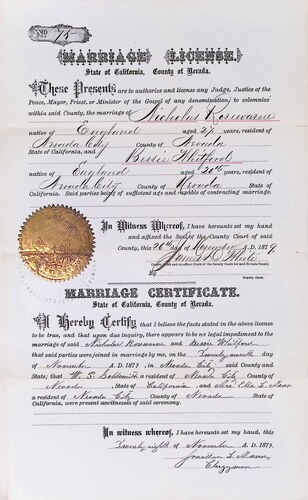 No. 75
MARRIAGE LICENSE.
State of California, County of Nevada.
These Presents are to authorize and license any Judge, Justice of the
Peace, Mayor, Priest, or Minister of the Gospel of any denomination, to solemnize
within said County, the marriage of Nicholas Rosewarne
native of England aged 27 years, resident of
Nevada City County of Nevada
State of California, and Bessie Whitford
native of England aged 20 years, resident of
Nevada City County of Nevada
State of California. Said parties being of sufficient age and capable of contracting marriage.
In Witness Whereof, I have hereunto set my hand
and affixed the Seal of the County Court of said
County, this 26th day of November A.D. 1879.
James D. White
County Clerk and ex-officio Clerk of the County Court for said Nevada County.
By
Deputy Clerk.
MARRIAGE CERTIFICATE.
State of California, County of Nevada.
I Hereby Certify that I believe the facts stated in the above license
to be true, and that upon due inquiry, there appears to be no legal impediment to the
marriage of said Nicholas Rosewarne and Bessie Whitford
that said parties were joined in marriage by me, on the Twenty seventh day
of November A.D. 1879 in Nevada City said County and
State; that W. S. Goldsmith a resident of Nevada City County of
Nevada, State of California and Mrs. Ella L.
a resident of Nevada City County of Nevada State of
California, were present as witnesses of said ceremony.
In Witness Whereof, I have hereunto set my hand, this
Twenty eighth of November A.D. 1879.
Jonathan L. Mann
Clergyman